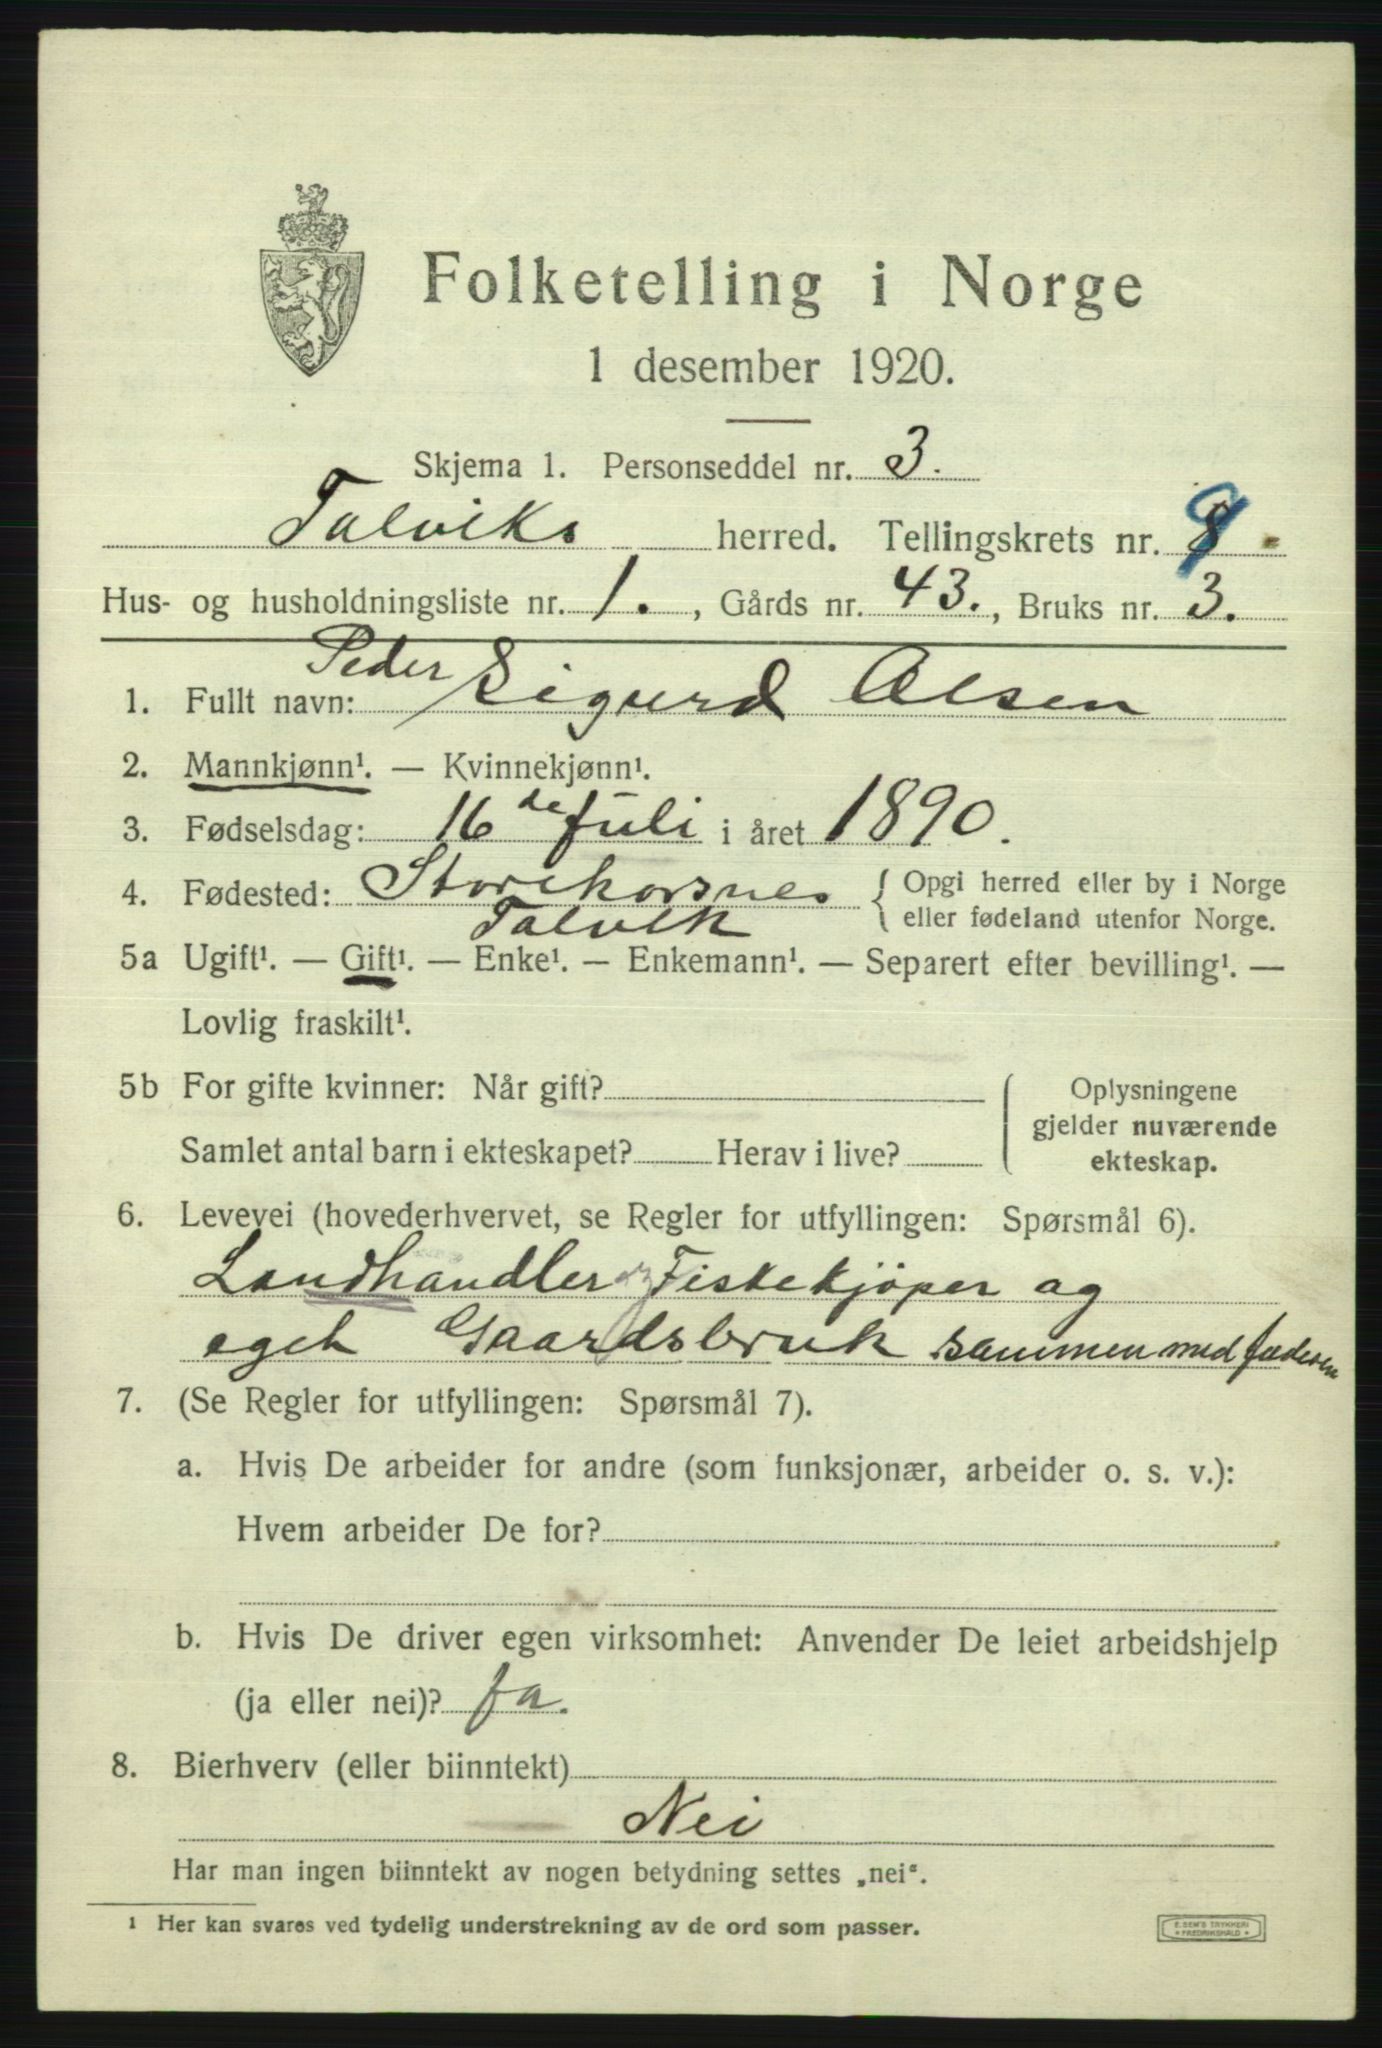 Folketelling i Norge
1 desember 1920.
Skjema 1. Personseddel nr. 3.
Talviks herred. Tellingskrets nr. 9
Hus- og husholdningsliste nr. 1., Gårds nr. 43., Bruks nr. 3.
1. Fullt navn: Peder Sigurd Olsen
2. Mannkjønn¹. — Kvinnekjønn¹.
3. Fødselsdag: 16de Juli i året 1890.
4. Fødested: Storekorsnes { Opgi herred eller by i Norge
Talvik eller fødeland utenfor Norge.
5a Ugift¹. — Gift¹. — Enke¹. — Enkemann¹. — Separert efter bevilling¹. —
Lovlig fraskilt¹.
5b For gifte kvinner: Når gift? Oplysningene
gjelder nuværende
Samlet antal barn i ekteskapet? Herav i live? ekteskap.
6. Levevei (hovederhvervet, se Regler for utfyllingen: Spørsmål 6).
Landhandler Fiskekjöper og
eget Gaardsbruk sammen med faderen
7. (Se Regler for utfyllingen: Spørsmål 7).
a. Hvis De arbeider for andre (som funksjonær, arbeider o. s. v.):
Hvem arbeider De for?
b. Hvis De driver egen virksomhet: Anvender De leiet arbeidshjelp
(ja eller nei)? Ja.
8. Bierhverv (eller biinntekt)
Nei
Har man ingen biinntekt av nogen betydning settes „nei“.
¹ Her kan svares ved tydelig understrekning av de ord som passer.
E. SEM'S TRYKKERI
* FREDRIKSHALD *